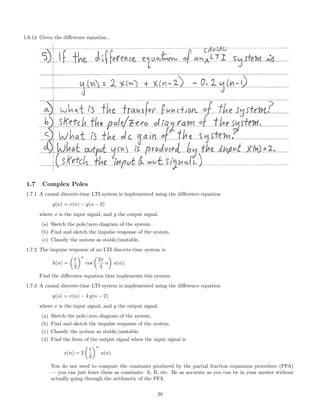 1.6.14 Given the difference equation...
CAUSAL
5) If the difference equation of an LTI system is
y(n) = 2 x(n) + x(n-2) - 0.2 y(n-1)
a) What is the transfer function of the system?
b) Sketch the pole/zero diagram of the system.
c) What is the dc gain of the system?
d) What output y(n) is produced by the input x(n)=2.
(Sketch the input & out signals.)
1.7 Complex Poles
1.7.1 A causal discrete-time LTI system is implemented using the difference equation
y(n) = x(n) − y(n − 2)
where x is the input signal, and y the output signal.
(a) Sketch the pole/zero diagram of the system.
(b) Find and sketch the impulse response of the system.
(c) Classify the system as stable/unstable.
1.7.2 The impulse response of an LTI discrete-time system is
h(n) = (1/2)^n cos (2π/3 n) u(n).
Find the difference equation that implements this system.
1.7.3 A causal discrete-time LTI system is implemented using the difference equation
y(n) = x(n) − 4 y(n − 2)
where x is the input signal, and y the output signal.
(a) Sketch the pole/zero diagram of the system.
(b) Find and sketch the impulse response of the system.
(c) Classify the system as stable/unstable.
(d) Find the form of the output signal when the input signal is
x(n) = 2 (1/3)^n u(n).
You do not need to compute the constants produced by the partial fraction expansion procedure (PFA)
— you can just leave them as constants: A, B, etc. Be as accurate as you can be in your answer without
actually going through the arithmetic of the PFA.
20